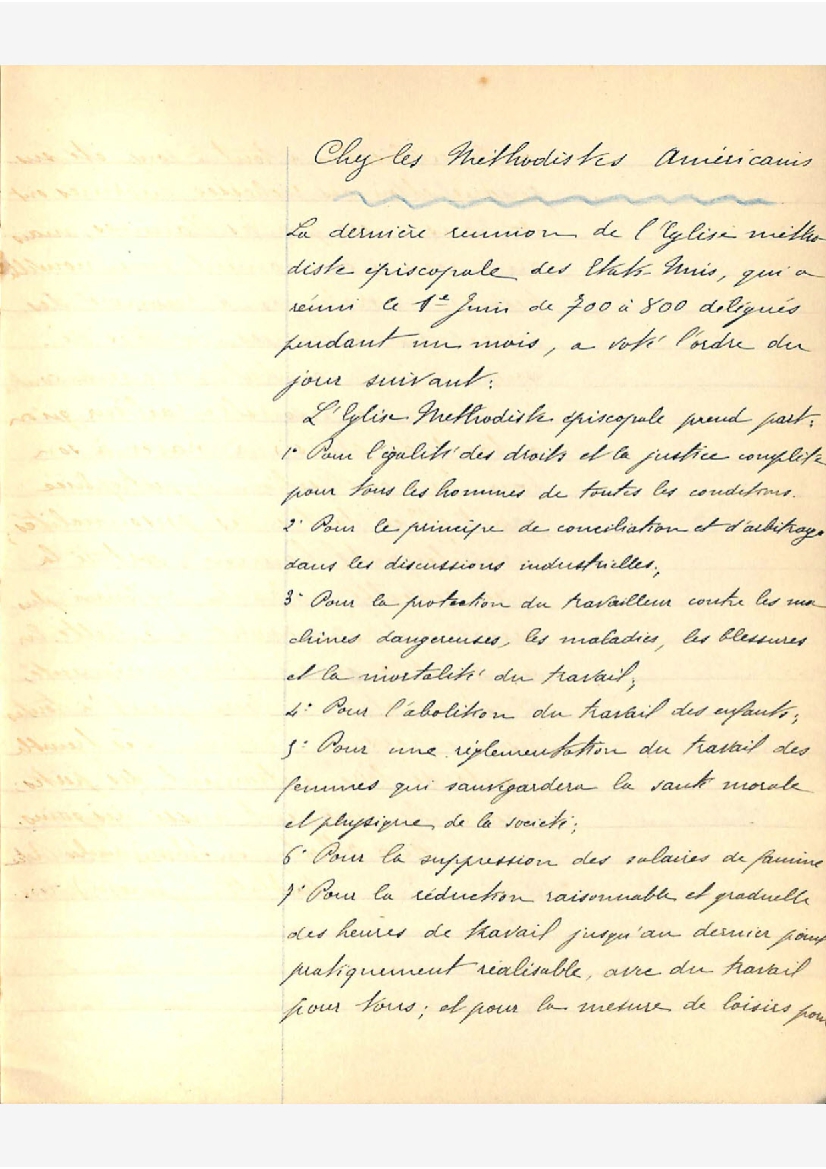 Chez les Méthodistes Américains
La dernière reunion de l'Eglise métho
diste épiscopale des Etats-Unis, qui a
réuni le 1e Juin de 700 à 800 délégués
pendant un mois, a voté l'ordre du
jour suivant:
L'Eglise Methodiste épiscopale prend part:
1° Pour l'égalité des droits et la justice complète
pour tous les hommes de toutes les conditions.
2° Pour le principe de conciliation et d'arbitrage
dans les discussions industrielles;
3° Pour la protection du travailleur contre les ma
chines dangereuses, les maladies, les blessures
et la mortalité du travail;
4° Pour l'abolition du travail des enfants;
5° Pour une réglementation du travail des
femmes qui sauvegardera la santé morale
et physique de la société;
6° Pour la suppression des salaires de famine
7° Pour la réduction raisonnable et graduelle
des heures de travail jusqu'au dernier point
pratiquement réalisable, avec du travail
pour tous; et pour la mesure de loisirs pour